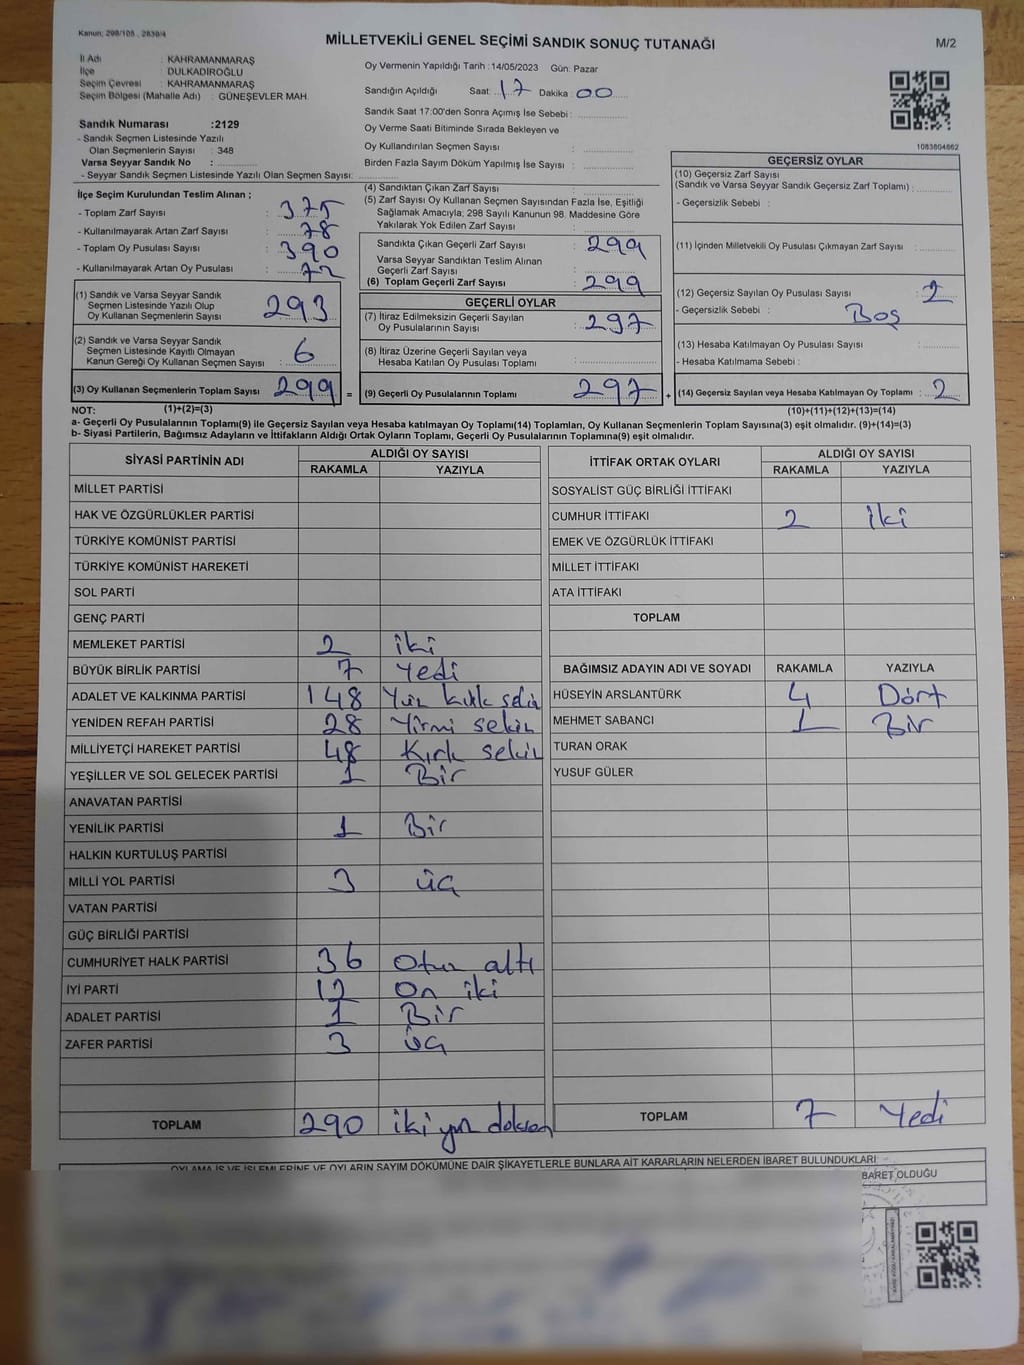 Kanun; 298/105 , 2839/4
MİLLETVEKİLİ GENEL SEÇİMİ SANDIK SONUÇ TUTANAĞI
M/2
İl Adı : KAHRAMANMARAŞ
İlçe : DULKADİROĞLU
Seçim Çevresi : KAHRAMANMARAŞ
Seçim Bölgesi (Mahalle Adı) : GÜNEŞEVLER MAH.
Sandık Numarası :2129
- Sandık Seçmen Listesinde Yazılı
Olan Seçmenlerin Sayısı : 348
Varsa Seyyar Sandık No :
- Seyyar Sandık Seçmen Listesinde Yazılı Olan Seçmen Sayısı:
Oy Vermenin Yapıldığı Tarih : 14/05/2023 Gün: Pazar
Sandığın Açıldığı Saat: 17 Dakika : 00
Sandık Saat 17:00'den Sonra Açımış İse Sebebi :
Oy Verme Saati Bitiminde Sırada Bekleyen ve
Oy Kullandırılan Seçmen Sayısı :
Birden Fazla Sayım Döküm Yapılmış İse Sayısı :
1083804862
İlçe Seçim Kurulundan Teslim Alınan ;
- Toplam Zarf Sayısı : 375
- Kullanılmayarak Artan Zarf Sayısı : 78
- Toplam Oy Pusulası Sayısı : 390
- Kullanılmayarak Artan Oy Pusulası : 72
(1) Sandık ve Varsa Seyyar Sandık
Seçmen Listesinde Yazılı Olup
Oy Kullanan Seçmenlerin Sayısı : 293
(2) Sandık ve Varsa Seyyar Sandık
Seçmen Listesinde Kayıtlı Olmayan
Kanun Gereği Oy Kullanan Seçmen Sayısı : 6
(3) Oy Kullanan Seçmenlerin Toplam Sayısı : 299 =
(4) Sandıktan Çıkan Zarf Sayısı :
(5) Zarf Sayısı Oy Kullanan Seçmen Sayısından Fazla İse, Eşitliği
Sağlamak Amacıyla; 298 Sayılı Kanunun 98. Maddesine Göre
Yakılarak Yok Edilen Zarf Sayısı :
Sandıkta Çıkan Geçerli Zarf Sayısı : 299
Varsa Seyyar Sandıktan Teslim Alınan
Geçerli Zarf Sayısı :
(6) Toplam Geçerli Zarf Sayısı : 299
GEÇERLİ OYLAR
(7) İtiraz Edilmeksizin Geçerli Sayılan
Oy Pusulalarının Sayısı : 297
(8) İtiraz Üzerine Geçerli Sayılan veya
Hesaba Katılan Oy Pusulası Toplamı :
(9) Geçerli Oy Pusulalarının Toplamı : 297 +
GEÇERSİZ OYLAR
(10) Geçersiz Zarf Sayısı
(Sandık ve Varsa Seyyar Sandık Geçersiz Zarf Toplamı) :
- Geçersizlik Sebebi :
(11) İçinden Milletvekili Oy Pusulası Çıkmayan Zarf Sayısı :
(12) Geçersiz Sayılan Oy Pusulası Sayısı : 2
- Geçersizlik Sebebi : Boş
(13) Hesaba Katılmayan Oy Pusulası Sayısı :
- Hesaba Katılmama Sebebi :
(14) Geçersiz Sayılan veya Hesaba Katılmayan Oy Toplamı : 2
NOT: (1)+(2)=(3) (10)+(11)+(12)+(13)=(14)
a- Geçerli Oy Pusulalarının Toplamı(9) ile Geçersiz Sayılan veya Hesaba katılmayan Oy Toplamı(14) Toplamları, Oy Kullanan Seçmenlerin Toplam Sayısına(3) eşit olmalıdır. (9)+(14)=(3)
b- Siyasi Partilerin, Bağımsız Adayların ve İttifakların Aldığı Ortak Oyların Toplamı, Geçerli Oy Pusulalarının Toplamına(9) eşit olmalıdır.
SİYASİ PARTİNİN ADI ALDIĞI OY SAYISI
RAKAMLA YAZIYLA
MİLLET PARTİSİ
HAK VE ÖZGÜRLÜKLER PARTİSİ
TÜRKİYE KOMÜNİST PARTİSİ
TÜRKİYE KOMÜNİST HAREKETİ
SOL PARTİ
GENÇ PARTİ
MEMLEKET PARTİSİ 2 iki
BÜYÜK BİRLİK PARTİSİ 7 Yedi
ADALET VE KALKINMA PARTİSİ 148 Yüz kırk sekiz
YENİDEN REFAH PARTİSİ 28 Yirmi sekiz
MİLLİYETÇİ HAREKET PARTİSİ 48 Kırk sekiz
YEŞİLLER VE SOL GELECEK PARTİSİ 1 Bir
ANAVATAN PARTİSİ
YENİLİK PARTİSİ 1 Bir
HALKIN KURTULUŞ PARTİSİ
MİLLİ YOL PARTİSİ 3 üç
VATAN PARTİSİ
GÜÇ BİRLİĞİ PARTİSİ
CUMHURİYET HALK PARTİSİ 36 Otuz altı
İYİ PARTİ 12 On iki
ADALET PARTİSİ 1 Bir
ZAFER PARTİSİ 3 üç
TOPLAM 290 iki yüz doksan
İTTİFAK ORTAK OYLARI ALDIĞI OY SAYISI
RAKAMLA YAZIYLA
SOSYALİST GÜÇ BİRLİĞİ İTTİFAKI
CUMHUR İTTİFAKI 2 İki
EMEK VE ÖZGÜRLÜK İTTİFAKI
MİLLET İTTİFAKI
ATA İTTİFAKI
TOPLAM
BAĞIMSIZ ADAYIN ADI VE SOYADI RAKAMLA YAZIYLA
HÜSEYİN ARSLANTÜRK 4 Dört
MEHMET SABANCI 1 Bir
TURAN ORAK
YUSUF GÜLER
TOPLAM 7 Yedi
OYLAMA İŞ VE İŞLEMLERİNE VE OYLARIN SAYIM DÖKÜMÜNE DAİR ŞİKAYETLERLE BUNLARA AİT KARARLARIN NELERDEN İBARET BULUNDUKLARI
BARET OLDUĞU